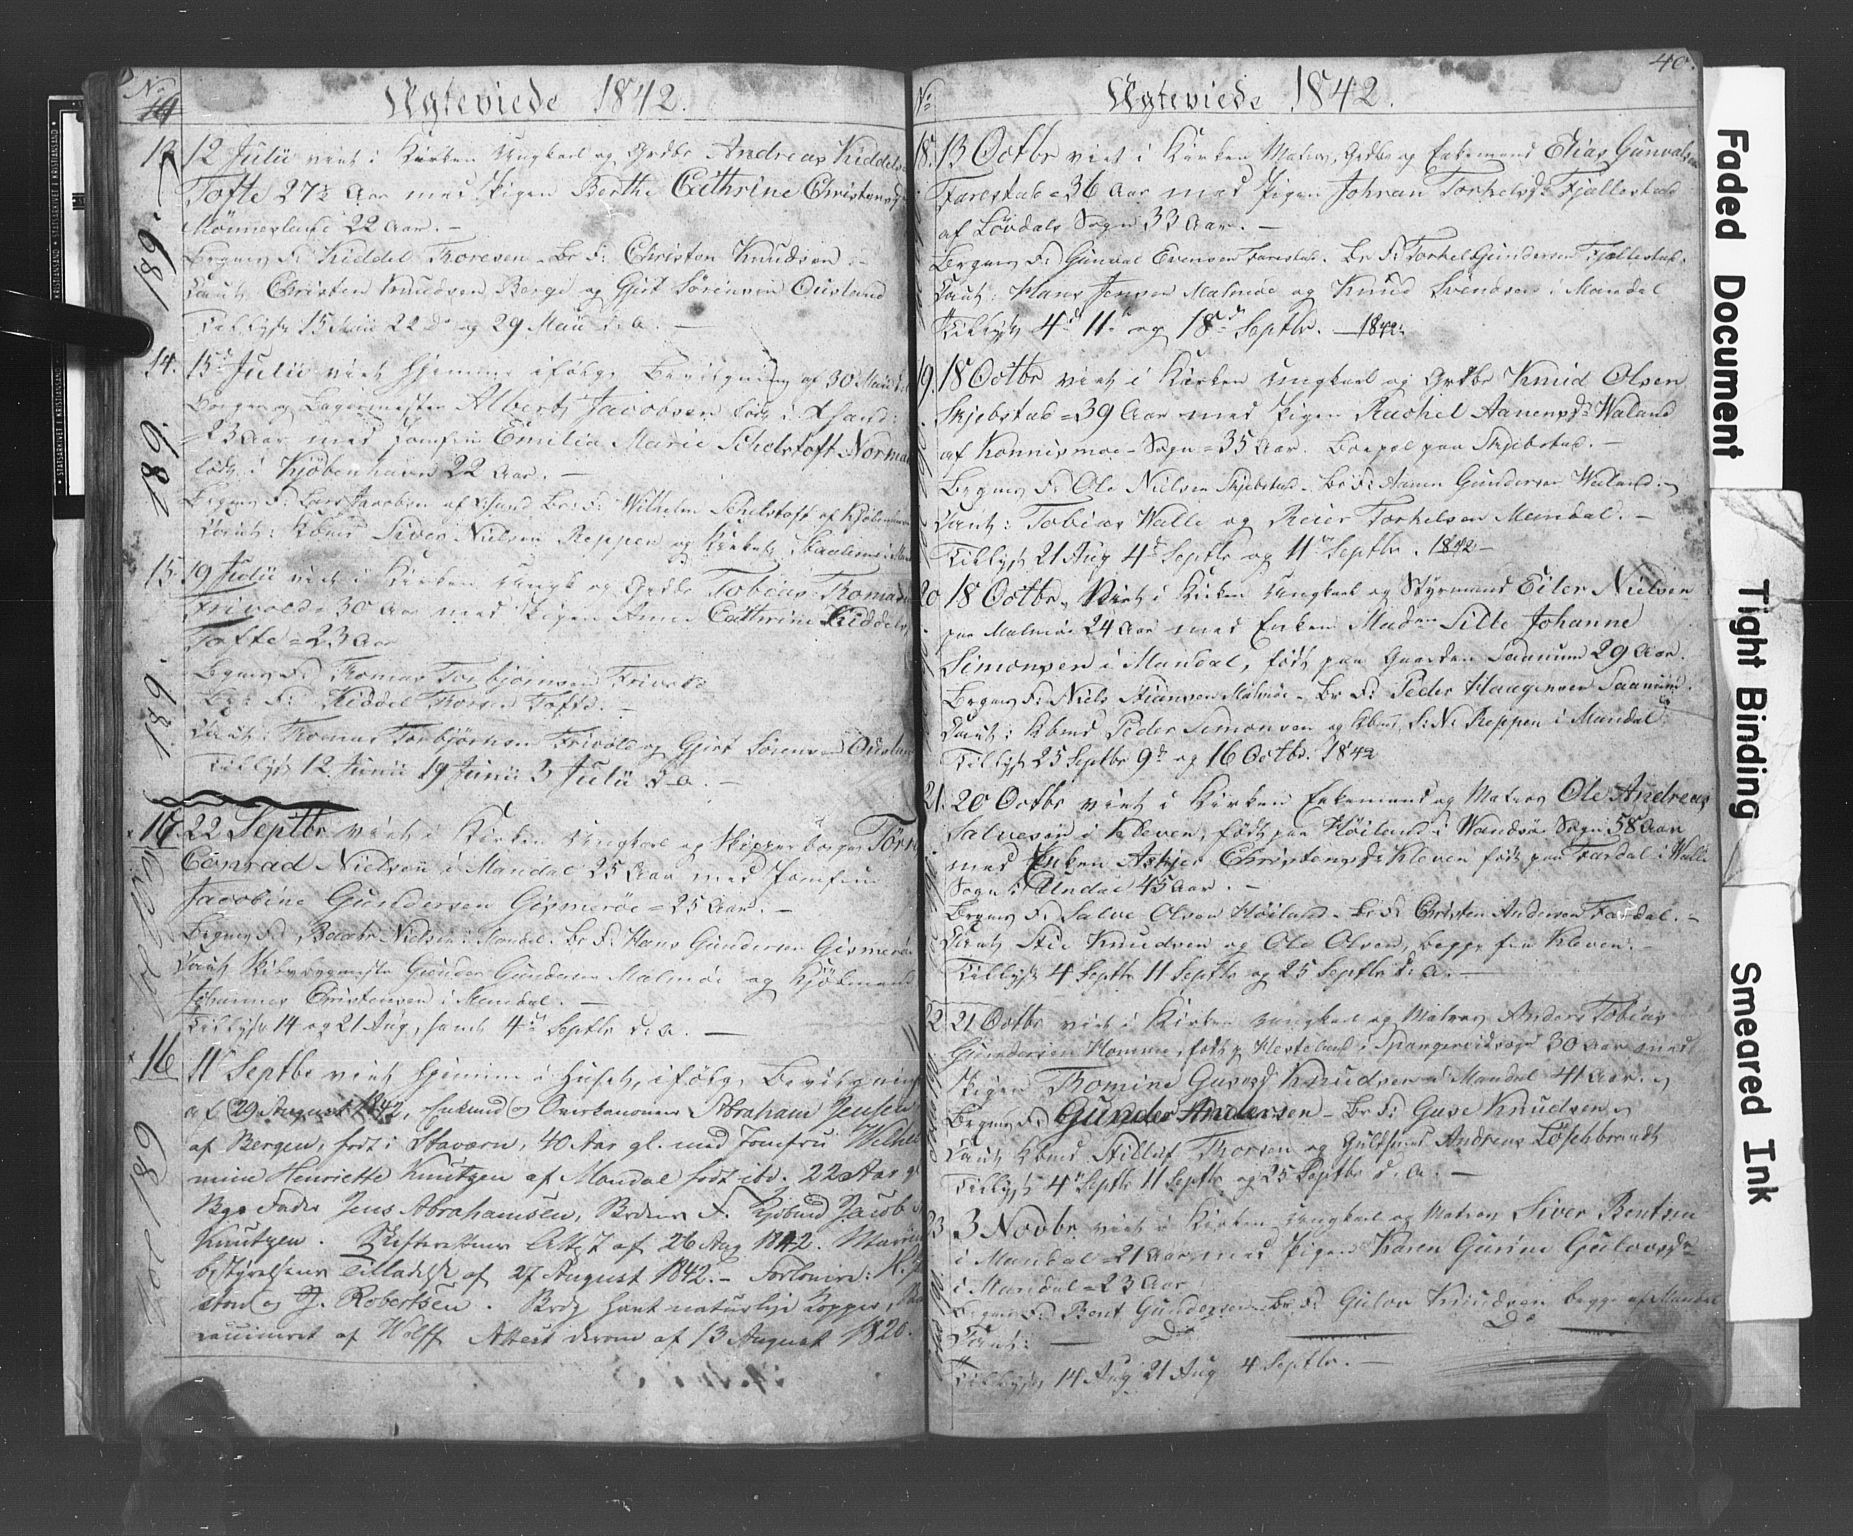 No
Ægteviede 1842.
13. 12 Julii viet i Kirken Ungkarl og Grdbr Andreas Kiddels
Tofte 27½ Aar med Pigen Berthe Cathrine Christensd
22 Aar. –
Brgms F: Kiddel Thoresen – Br F: Christen Knudsen
Caut: Christen Knudsen Berge og Gjert Sörensen Ousland
Tillyst 15 22 og 29 Maii d. a. –
14. 15 Julii viet hjemme ifölge Bevilgning af 30 Maii
Borger og Bagermester Alberth Jacobsen födt i Xsand:
= 23 Aar med Jomfru Emilia Marie Schelstoft Norman
födt i Kjöbenhavn 22 Aar. –
Brgms F: Lars Jacobsen af Xsand Br: F: Wilhelm Schelstoft af Kjöbenhavn
Caut: Kbmd Siver Nielsen Reppen og
15. 19 Julii viet i Kirken Ungk og Grdbr Tobias Thomas
Frivold = 30 Aar med Pigen Anne Cathrine Kiddels
Tofte = 23 Aar
Brgms F: Thomas Torbjörnsen Frivold
F: Kiddel Thorsen Tofte. –
Caut: Thomas Torbjörnsen Frivold og Gjert Sörensen Ousland
Tillyst 12 Junii 19 Junii 3 Julii d. a. –
22 Septbr viet i Kirken Ungkarl og Skipperborger Törn
Conrad Nielsen i Mandal 25 Aar med Jomfru
Jacobine Gundersen Gismeröe = 25 Aar. –
Brgms F: Nielsen i Mandal. Br F: Hans Gundersen Gismeröe
Caut Skibsbygmester Gunder Gundersen Malmöe og Kjöbmand
Johannes Christensen i Mandal. –
Tillyst 14 og 21 Aug, samt 4 Septbr d. a. –
16 11 Septbr viet hjemme i Huset, ifölge Bevilgning
af 29 August 1842, Enkemd og Abraham Jensen
af Bergen, födt i Staværn, 40 Aar gl. med Jomfru Wilhel
mine Henriette Knutzen af Mandal födt ibd. 22 Aar gl
Bgs Fader Jens Abrahamsen, Brdens F. Kjöbmd Jacob
Knutzen. Skifterettens Attest af 26 Aug 1842.
bestyrelsens Tilladelse af 27 August 1842. – Forlovere:
og J. Robertsen. Brdg havt naturlige Kopper,
vaccineret af Wolff Attest derom af 13 August 1820.
No
Ægteviede 1842.
40.
18. 13 Octbr viet i Kirken Matros, Grdbr og Enkemand Elias Gunvals
Farestad = 36 Aar med Pigen Johran Torkelsd: Fjellestad
af Lövdals Sogn 33 Aar. –
Brgms F: Gunval Evensen Farestad. Br F: Torkel Gundersen Fjellestad.
Caut: Hans Jensen Malmöe og Knud Svendsen i Mandal
Tillyst 4 11 og 18 Septbr. – 1842
19. 18 Octbr viet i Kirken Ungkarl og Grdbr Knud Olsen
Skjebstad = 39 Aar med Pigen Rachel Aanensd: Waland
af Konnismoe – Sogn = 35 Aar. Boepæl paa Skjebstad. –
Brgms F: Ole Nielsen Skjebstad – Br F: Aanen Gundersen Waland
Caut: Tobias Walle og Reier Torkelsen Mandal. –
Tillyst 21 Aug 4 Septbr og 11 Septbr. 1842 –
20 18 Octbr Viet i Kirken Ungkarl og Styrmand Eiler Nielsen
paa Malmöe 24 Aar med Enken Mad Silte Johanne
Simonsen i Mandal, födt paa Gaarden Saanum 29 Aar.
Brgms F: Niels Stiansen Malmöe – Br F: Peder Haagensen Saanum.
Caut: Kbmd Peder Simonsen og S: N: Reppen i Mandal
Tillyst 25 Septbr 9 og 16 Octbr. 1842
21. 20 Octbr viet i Kirken Enkemand og Matros Ole Andreas
Salvesen i Kleven, födt paa Höiland i Sogn 58 Aar
med Enken Christensd: Kleven födt paa Fardal i Walle
Sogn i Undal 45 Aar. –
Brgms F: Salve Olsen Höiland – Br F: Christen Andersen Fardal. –
Caut Stie Knudsen og Ole Olsen, begge fra Kleven. –
Tillyst 4 Septbr 11 Septbr og 25 Septbr d. a. –
22 21 Octbr viet i Kirken Ungkarl og Matros Anders Tobias
Gundersen födt p Hesteland i Spangereidsogn 30 Aar med
Pigen Thomine Knudsen i Mandal 41 Aar.
Brgms F: Gunder Andersen – Br F: Guse Knudsen
Caut Kbmd Thorsen og Guldsmd Andreas Löschbrandt
Tillyst 4 Septbr 11 Septbr og 25 Septbr d. a. –
23 3 Novbr viet i Kirken Ungkarl og Matros Siver Bentsen
i Mandal = 21 Aar med Pigen Karen Gurine Gulovsdr
i Mandal = 23 Aar
Brgms F: Bent Gundersen – Br F: Gulov Knudsen begge af Mandal
Caut: – Do – Do
Tillyst 14 Aug 21 Aug 4 Septbr. –
Faded Document
Tight Binding
Smeared Ink
STATSARKIVET I KRISTIANSAND